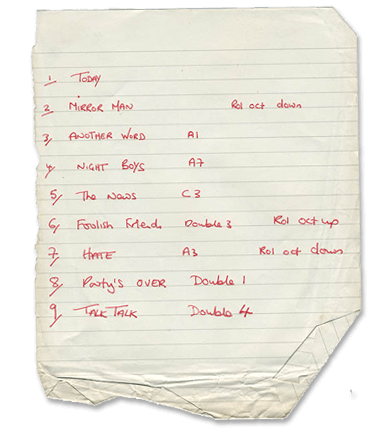 1, TODAY
2, MIRROR MAN Rol oct down
3, ANOTHER WORD A1
4, NIGHT BOYS A7
5, The News C3
6, Foolish Friends Double 3 Rol oct up
7, HATE A3 Rol oct down
8, Party's OVER Double 1
9, TALK TALK Double 4